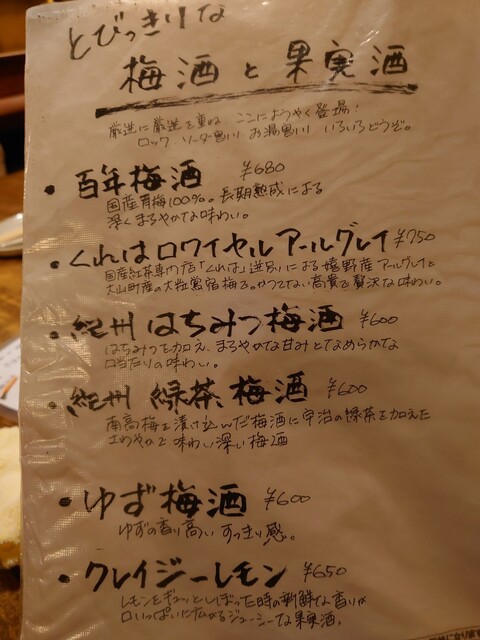 とびっきりな
梅酒と果実酒
厳選に厳選を重ね ここにようやく登場!
ロック ソーダ割り お湯割り いろいろどうぞ。
・百年梅酒 ¥680
国産青梅100%。長期熟成による
深くまろやかな味わい。
・くれはロワイヤルアールグレイ ¥750
国産紅茶専門店「くれは」選別による嬉野産アールグレイと
大山町産の大粒鶯宿梅を。かつてない高貴で贅沢な味わい。
・紀州はちみつ梅酒 ¥600
はちみつを加え、まろやかな甘みとなめらかな
口当たりの味わい。
・紀州 緑茶梅酒 ¥600
南高梅を漬け込んだ梅酒に宇治の緑茶を加えた
さわやかで味わい深い梅酒
・ゆず梅酒 ¥600
ゆずの香り高い すっきり感。
・クレイジーレモン ¥650
レモンをギュッとしぼった時の新鮮な香りが
口いっぱいに広がるジューシーな果実酒。